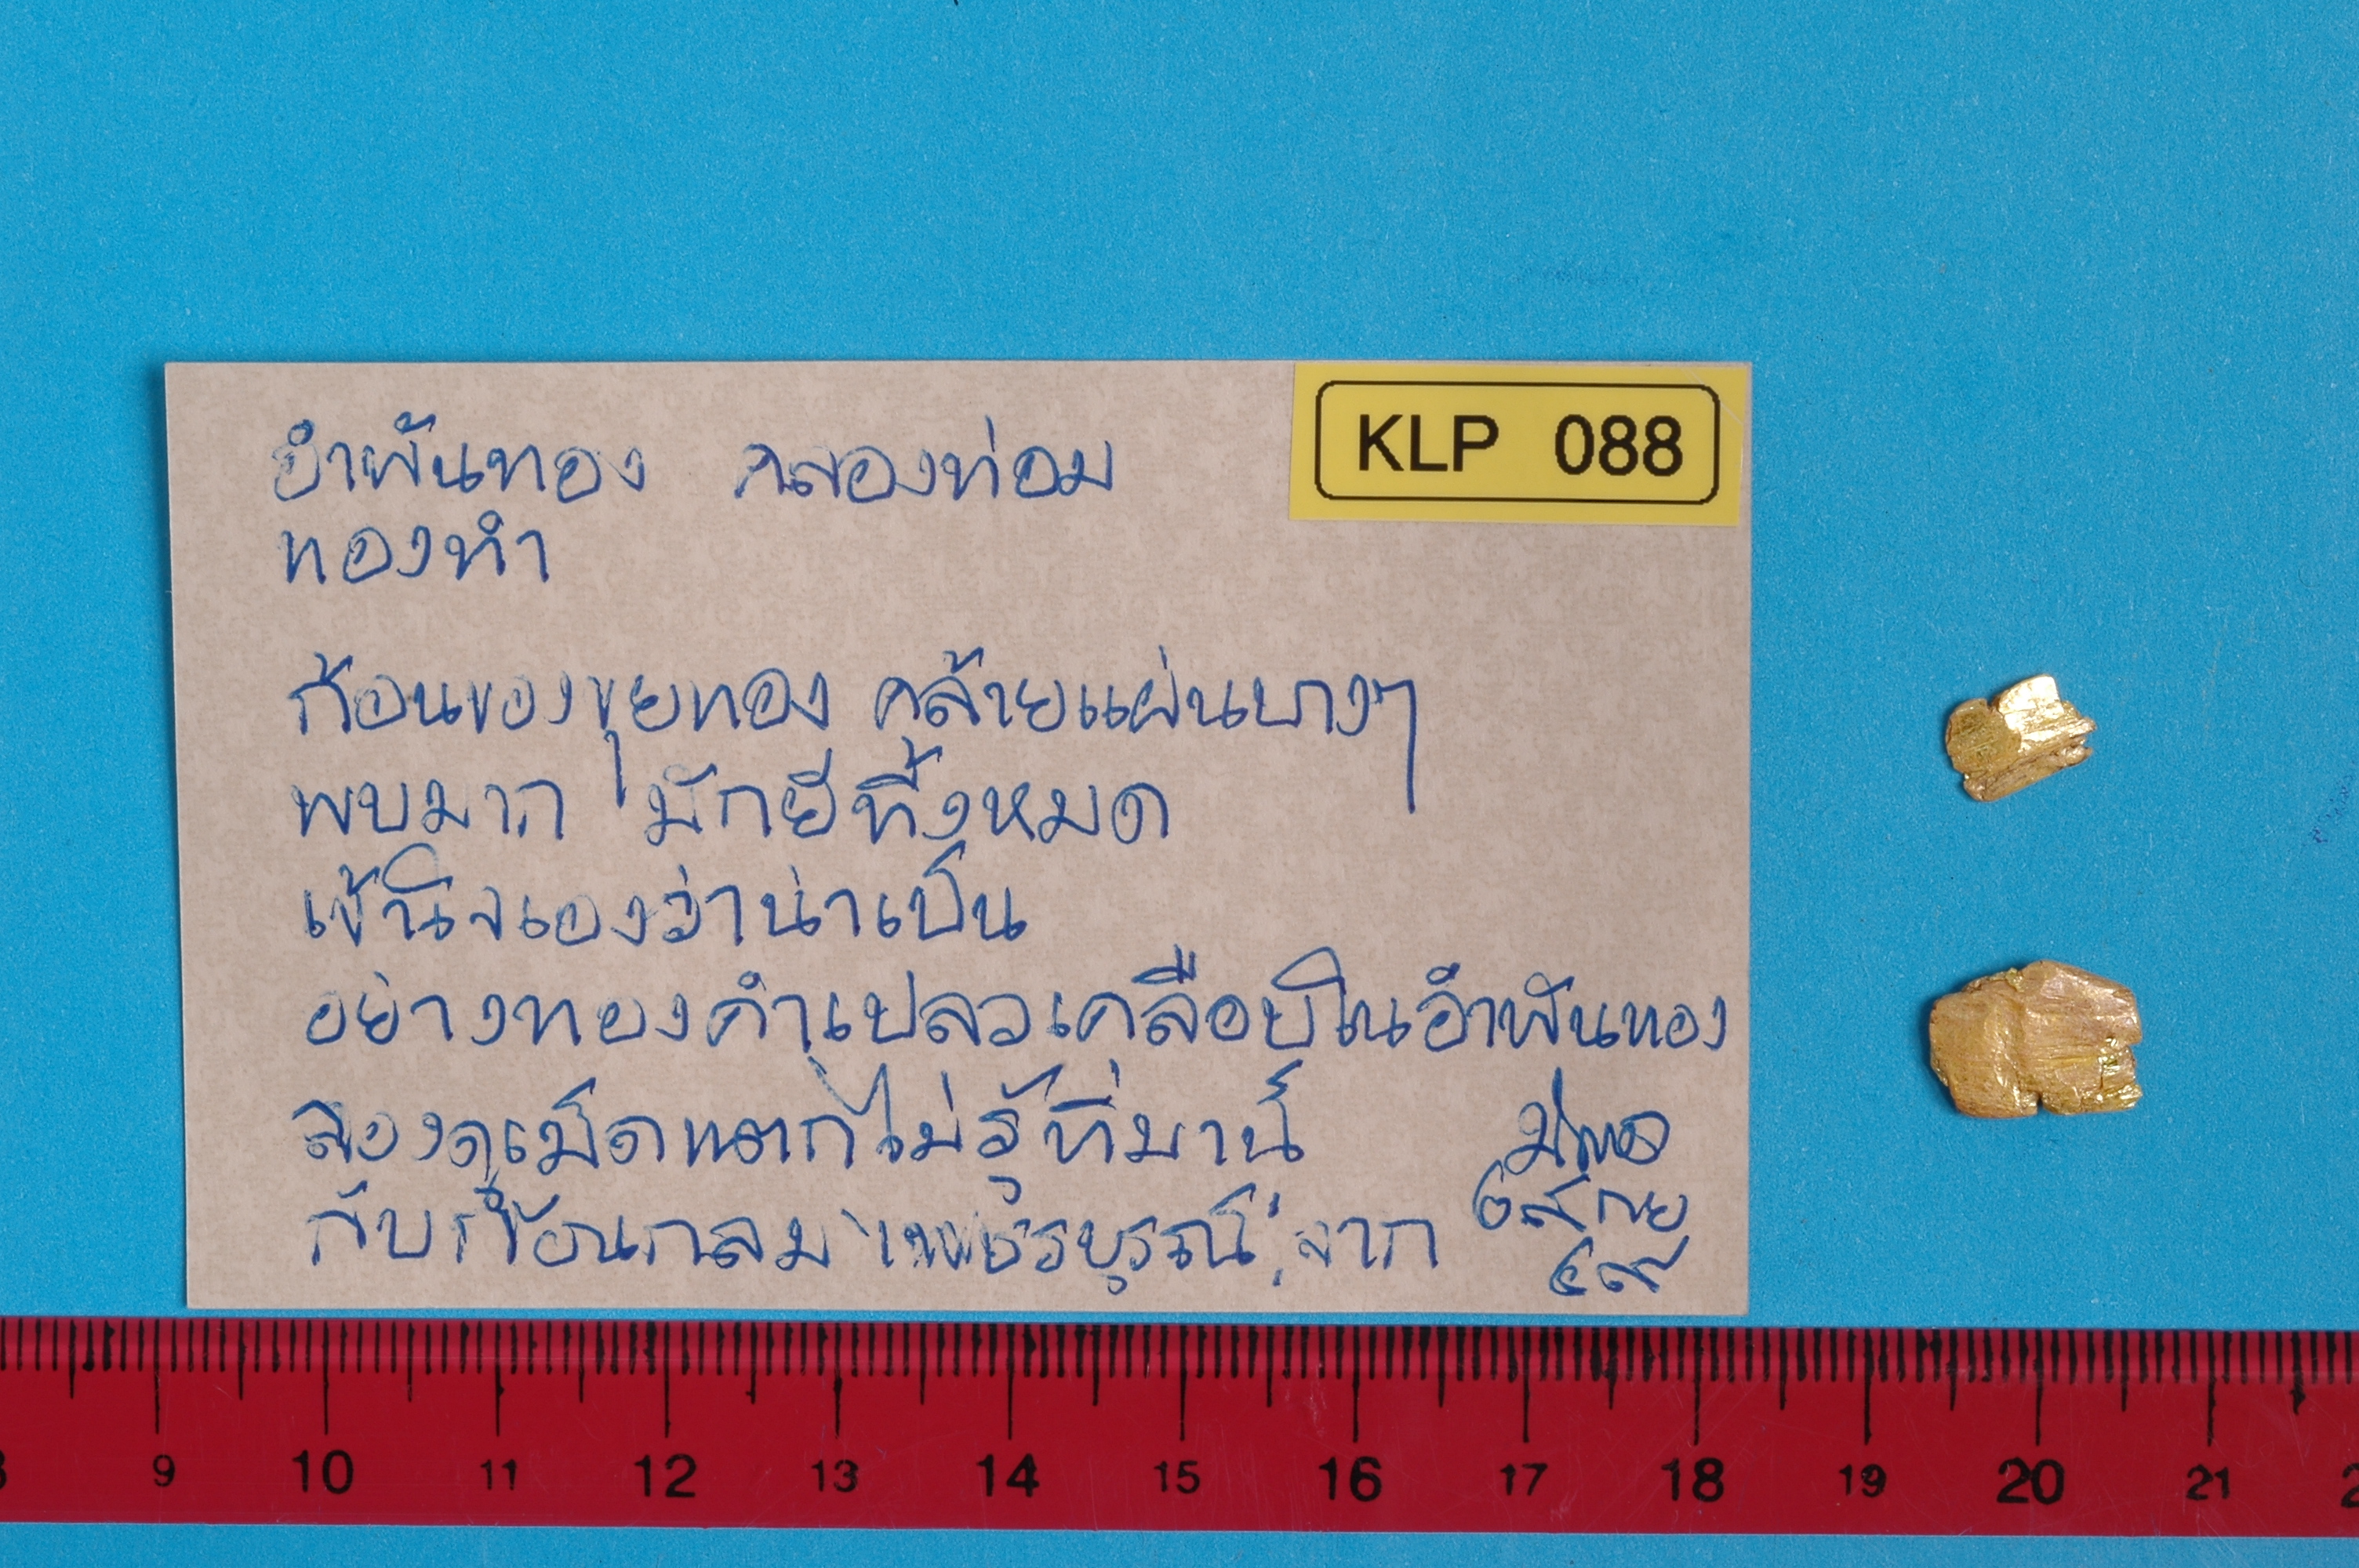 KLP 088
อำพันทอง คลองท่อม
ทองทำ
ก้อนของขุยทอง คล้ายแผ่นบางๆ
พบมาก มักยีทิ้งหมด
เข้าใจเองว่าน่าเป็น
อย่างทองคำเปลวเคลือบในอำพันทอง
ลองดูเม็ดแตกไม่รู้ที่มานี้
กับก้อนกลม "เพชรบูรณ์" จาก
๒๙ กย
๔๙
8 9 10 11 12 13 14 15 16 17 18 19 20 21 2